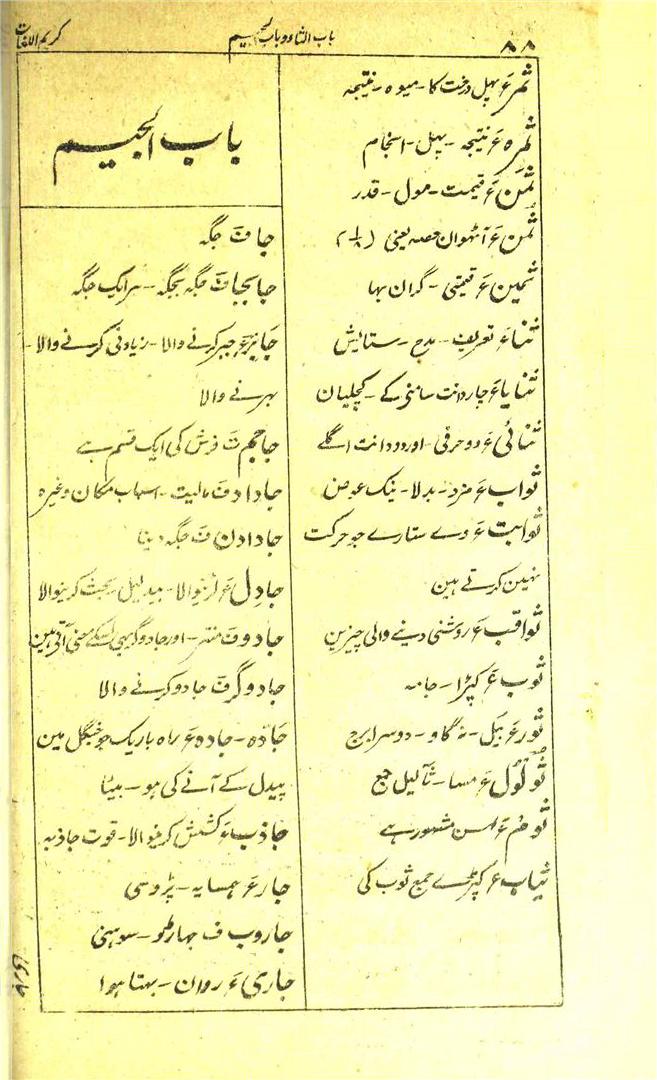 ۸۸
باب الثاء و باب الجیم
کریم اللغات
ثمر ء پهل درخت کا - میوہ - نتیجہ
ثمرہ ء نتیجہ - پهل - انجام
ثَمَن ء قیمت - مول - قدر
ثُمن ء آٹهوان حصہ یعنی (۱/۸)
ثمین ء قیمتی - گران بہا
ثناء ء تعریف - مدح - ستایش
ثنایا ء چار دانت سامنے کے - کچلیان
ثنائی ء دو حرفی - اور دو دانت اگلے
ثواب ء مزد - بدلا - نیک عوض
ثوابت ء وے ستارے جو حرکت
نہین کرتے ہین
ثواقب ء روشنی دینے والی چیزین
ثوب ء کپڑا - جامہ
ثور ء بیل - گاو - دوسرا برج
ثولول ء مسا - ثآلیل جمع
ثوم ء لہسن مشہور ہے
ثیاب ء کپڑے جمع ثوب کی
باب الجیم
جا ف جگہ
جابجا ف جگہ بجگہ - ہر ایک جگہ
جابر ء جبر کرنے والا - زیادتی کرنے والا -
بہرنے والا
جاجم ت فرش کی ایک قسم ہے
جاداد ف مالیت - اسباب مکان وغیرہ
جادادن ف جگہ دینا
جادِل ء لڑنیوالا - بیدلیل بحث کرنیوالا
جادو ف منتر - اور جادوگر بهی اسکے معنی آتی ہین
جادوگر ف جادو کرنے والا
جادّہ - جادہ ء راہ باریک جو جنگل مین
پیدل کے آنے کی ہو - بیٹا
جاذب ء کشش کرنیوالا - قوت جاذبہ
جار ء ہمسایہ - پڑوسی
جاروب ف جهاڑو - سوہنی
جاری ء روان - بہتا ہوا